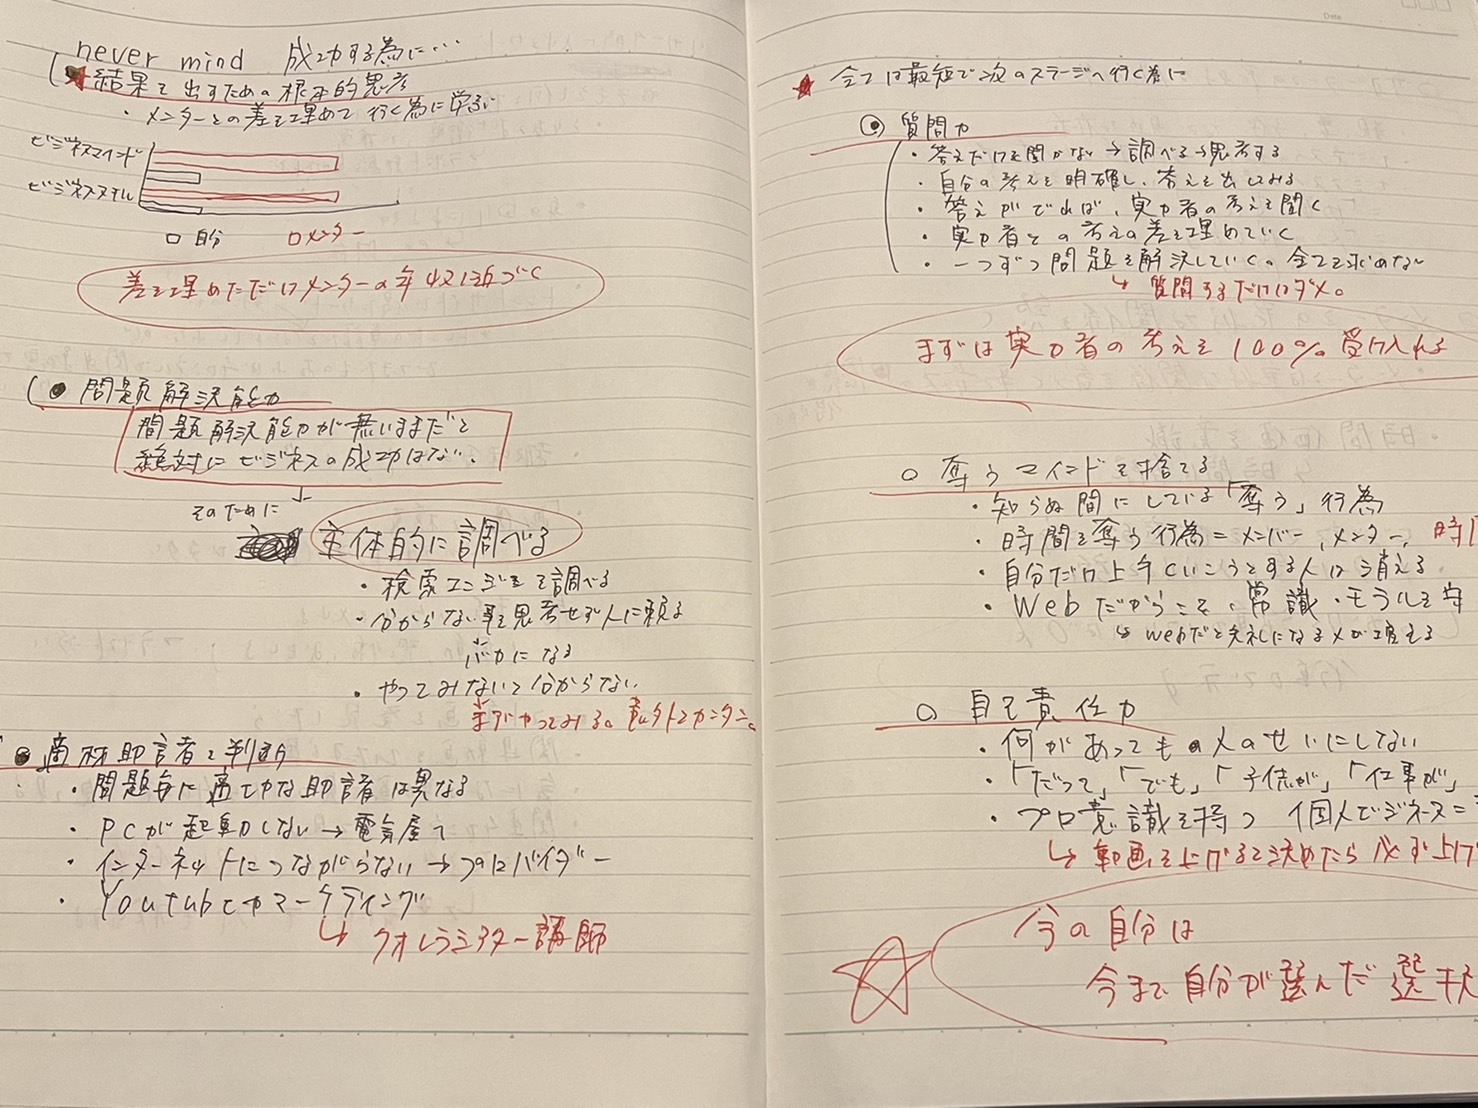 never mind 成功する為に…
★結果を出すための根本的思考
・メンターとの差を埋めて行く為に学ぶ
ビジネスマインド
ビジネススキル
□ 自分 □メンター
差を埋めただけメンターの年収に近づく
● 問題解決能力
問題解決能力が無いままだと
絶対にビジネスの成功はない。
↓
そのために
主体的に調べる
・検索エンジンで調べる
・分からない事を思考せず人に頼る
バカになる
・やってみないと分からない
まずやってみる。
● 商材助言者と判断
・問題毎に適切な助言者は異なる
・PCが起動しない→電気屋で
・インターネットにつながらない→プロバイダー
・Youtubeやマーケティング
↳ クオレラミアター講師
Date
★ 全ては最短で次のステージへ行く為に
◉ 質問力
・答えだけを聞かない→調べる→思考する
・自分の考えを明確し、答えを出してみる
・答えがでれば、実力者の考えを聞く
・実力者との考えの差を埋めていく
・一つずつ問題を解決していく。全てを求めない
↳ 質問するだけはダメ。
まずは実力者の考えを100%受け入れる
○ 奪うマインドを捨てる
・知らぬ間にしている「奪う」行為
・時間を奪う行為=メンバー、メンター、時
・自分だけ上手くいこうとする人は消える
・Webだからこそ、常識・モラルを守
↳ webだと失礼になる人が増える
○ 自己責任力
・何があっても人のせいにしない
・「だって」「でも」「子供が」「仕事が」
・プロ意識を持つ 個人ビジネス=
↳ 動画を上げると決めたら必ず上げ
今の自分は
今まで自分が選んだ選択